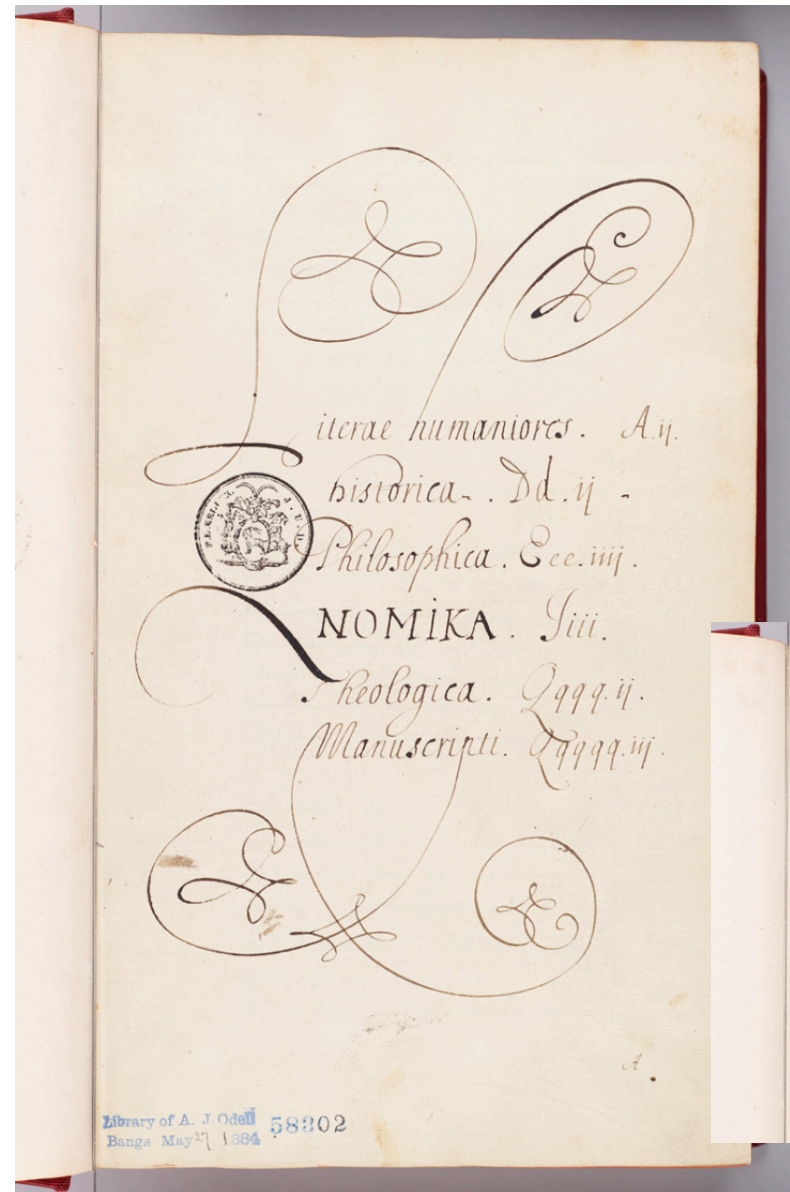 Literae humaniores. A.ij.
historica. Dd.ij
Philosophica. Eee.iiij.
NOMIKA. Iiii.
Theologica. Qqqq.ij.
Manuscripti. Qqqqq.iij.
A
Library of A. J. Odell 58302
Bangs May 27 1884